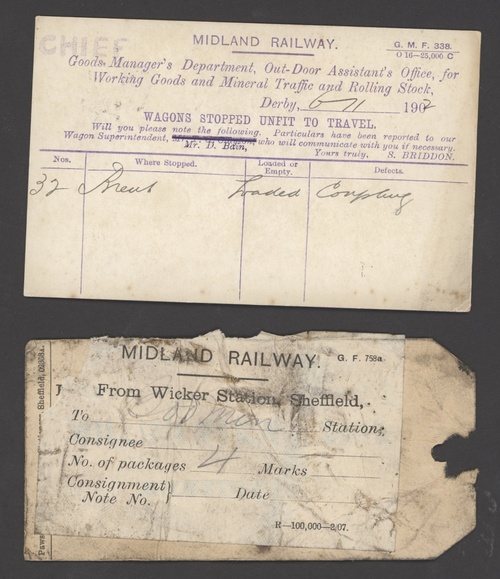 CHIEF
MIDLAND RAILWAY.
G. M. F. 338.
O 16—25,000 C
Goods Manager's Department, Out-Door Assistant's Office, for
Working Goods and Mineral Traffic and Rolling Stock,
Derby, 6/11 1902
WAGONS STOPPED UNFIT TO TRAVEL.
Will you please note the following. Particulars have been reported to our
Wagon Superintendent, Mr. D. Bain, who will communicate with you if necessary.
Yours truly, S. BRIDDON.
Nos. Where Stopped. Loaded or Empty. Defects.
32 Loaded Coupling
MIDLAND RAILWAY.
G. F. 758a
From Wicker Station, Sheffield,
To Station,
Consignee
No. of packages 4 Marks
Consignment
Note No. } Date
R—100,000—2/07.
Sheffield,